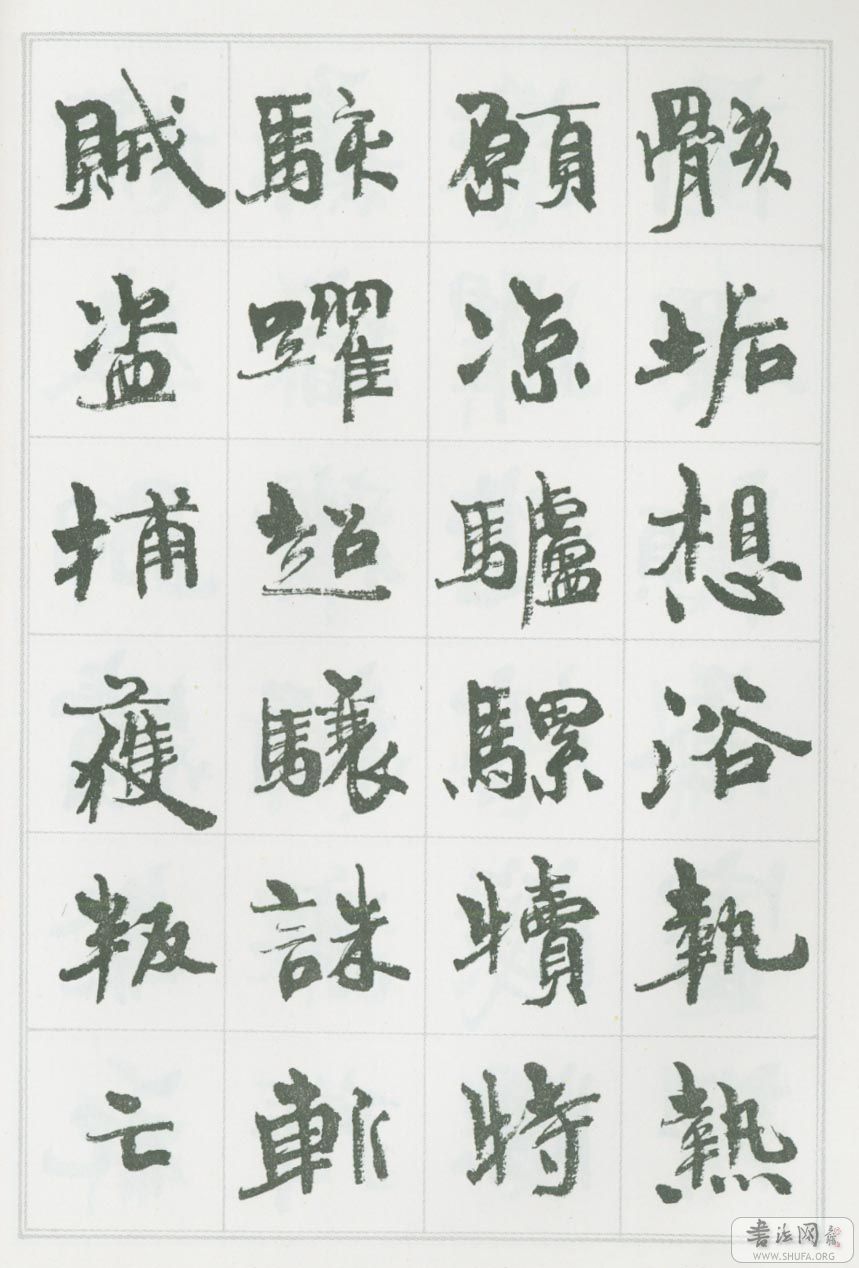 骸垢想浴執熱
願凉驢騾犢特
駭躍超驤誅斬
賊盗捕獲叛亡
書法网
WWW.SHUFA.ORG